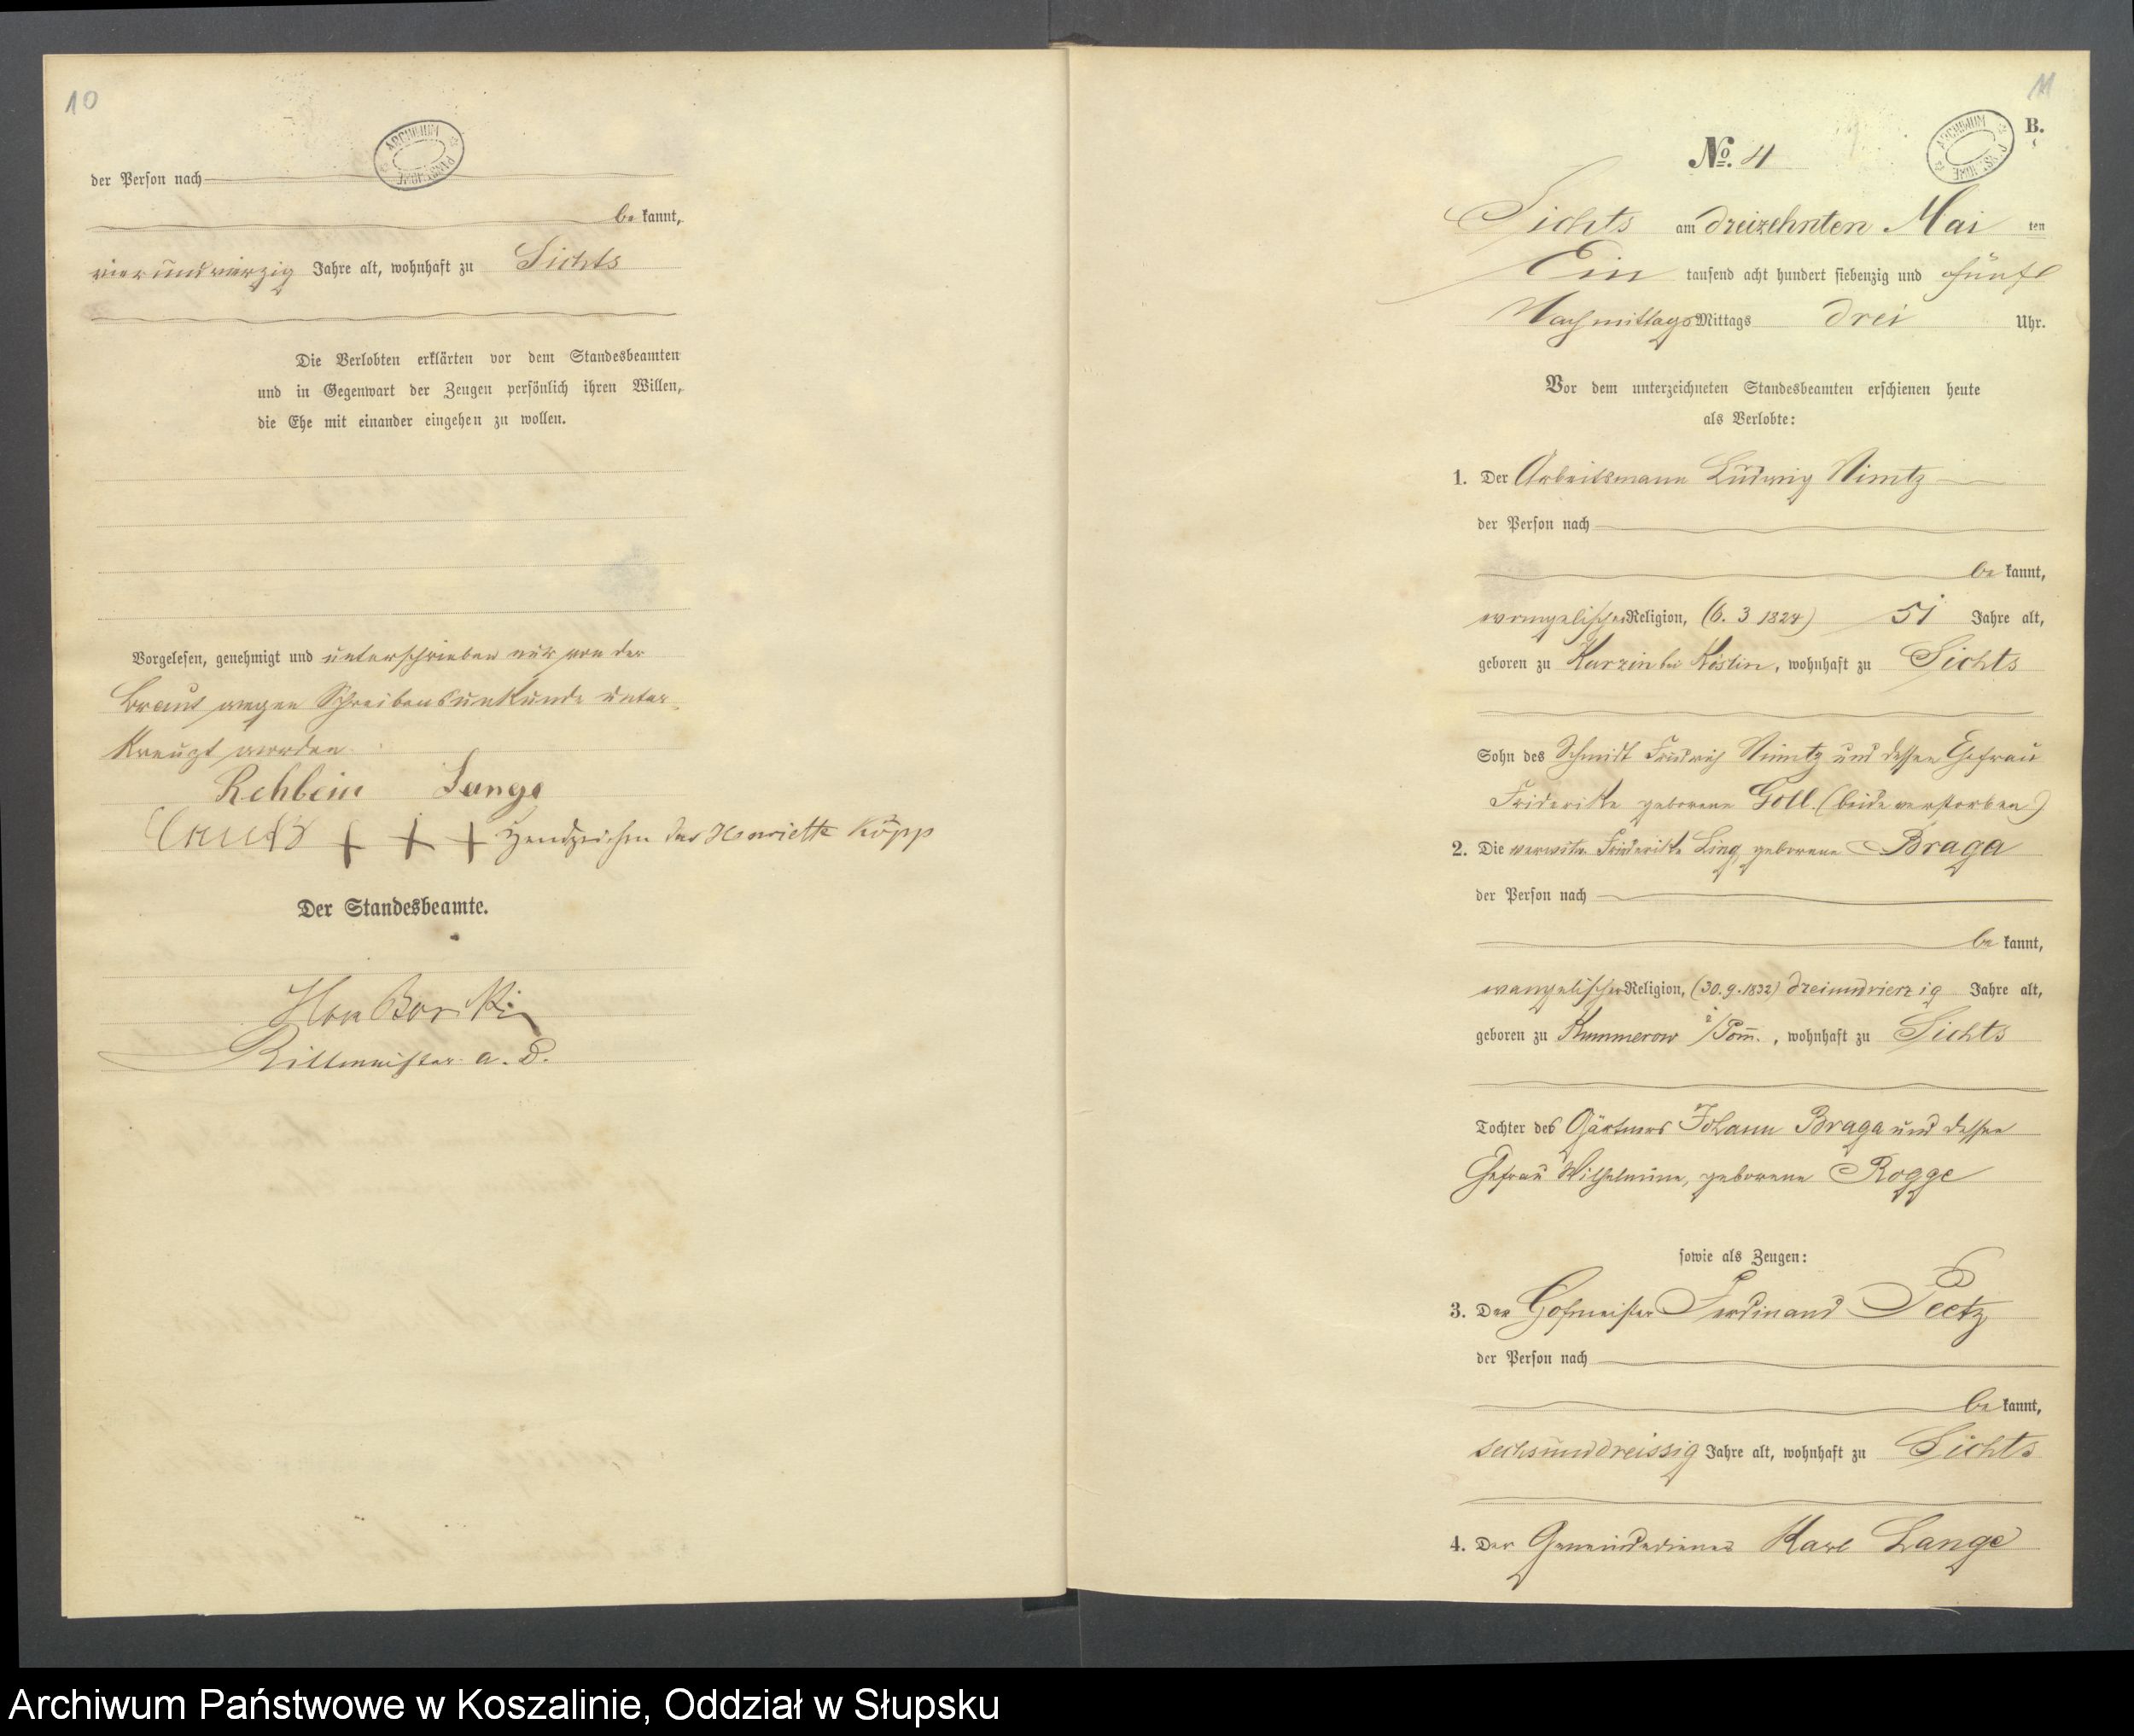 10
ARCHIWUM
der Person nach
be kannt,
vierundvierzig Jahre alt, wohnhaft zu Sichts
Die Verlobten erklärten vor dem Standesbeamten
und in Gegenwart der Zeugen persönlich ihren Willen,
die Ehe mit einander eingehen zu wollen.
Vorgelesen, genehmigt und unterschrieben nur von der
Braut wegen Schreibensunkunde unter-
kreuzt worden
Rehbein Lange
+ + + Handzeichen der Henriette Köpp
Der Standesbeamte.
Rittmeister a. D.
11
ARCHIWUM
B.
No. 4
Sichts am dreizehnten Mai ten
Ein tausend acht hundert siebenzig und fünf
Nachmittags Mittags drei Uhr.
Vor dem unterzeichneten Standesbeamten erschienen heute
als Verlobte:
1. Der Arbeitsmann Ludwig Nimtz
der Person nach
be kannt,
evangelischer Religion, (6. 3 1824) 51 Jahre alt,
geboren zu Kurzin bei Köslin, wohnhaft zu Sichts
Sohn des Schmidt Friedrich Nimtz und dessen Ehefrau
Friderike geborene Goll (beide verstorben)
2. Die verwitw. Friderike Ling geborene Braga
der Person nach
be kannt,
evangelischer Religion, (30. 9. 1832) dreiundvierzig Jahre alt,
geboren zu Kummerow i/Pom., wohnhaft zu Sichts
Tochter des Gärtners Johann Braga und dessen
Ehefrau Wilhelmine, geborene Rogge
sowie als Zeugen:
3. Der Hofmeister Ferdinand Peetz
der Person nach
be kannt,
sechsunddreissig Jahre alt, wohnhaft zu Sichts
4. Der Gemeindediener Karl Lange
Archiwum Państwowe w Koszalinie, Oddział w Słupsku